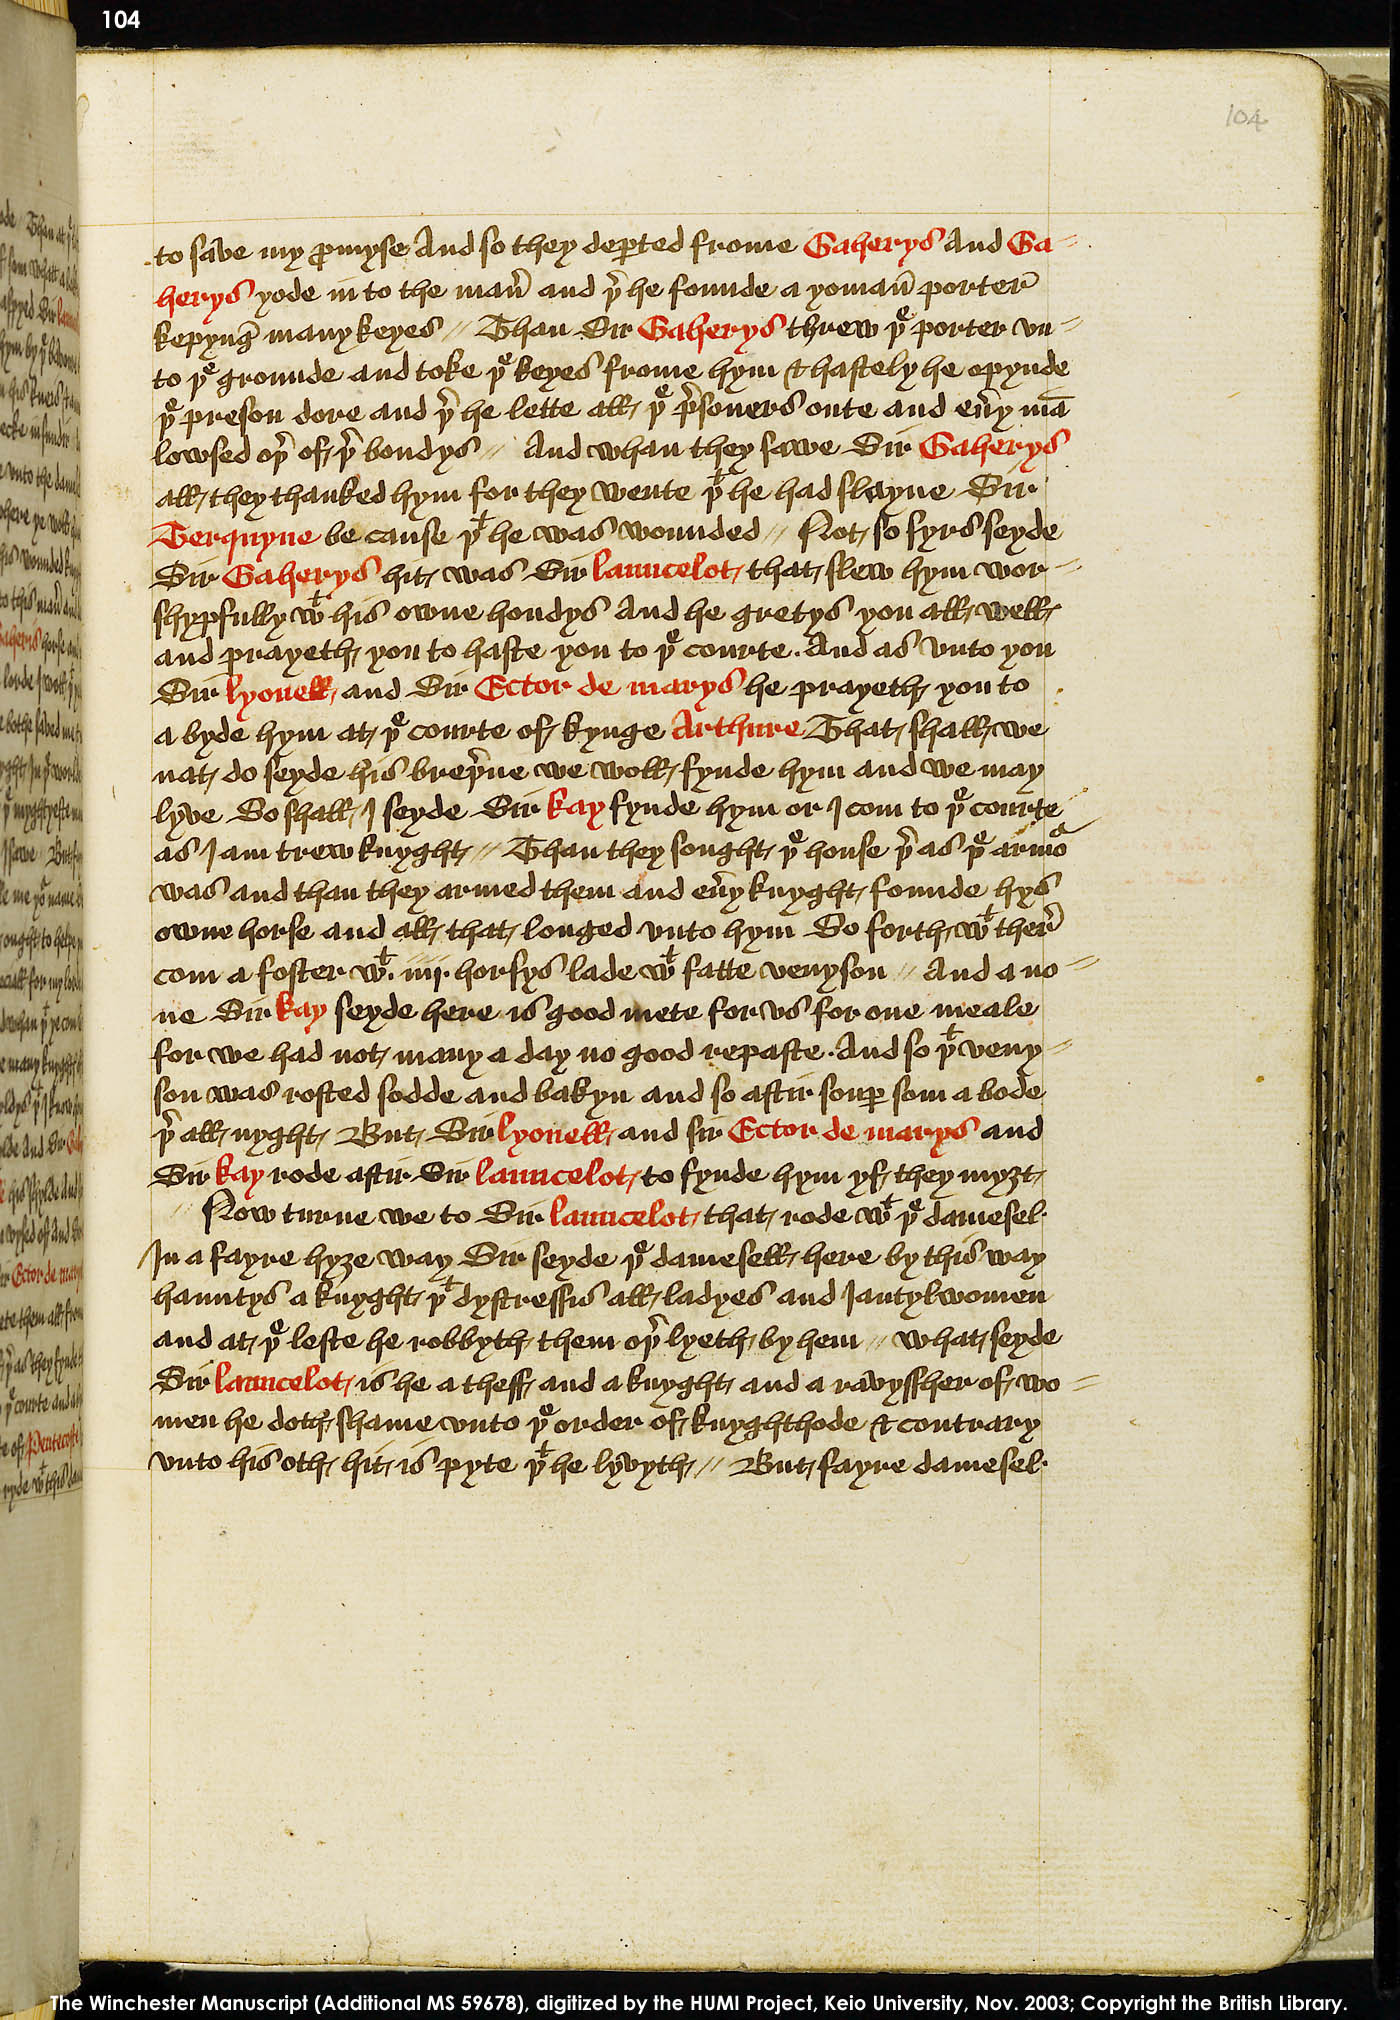 104
104
to save my ꝓmyse And so they deꝑted frome Gaherys And Ga=
herys yode in to the man̄ and þ̉ he founde a yoman̄ porter
kepyng many keyes // Than Sir Gaherys threw þͤ porter vn=
to þͤ grounde and toke þͤ keyes frome hym & hastely he opynde
þͤ preson dore and þ̉ he lette all þͤ p̉soners oute and eủy mā
lowsed op̉ of þ̉ bondys // And whan they sawe Sir Gaherys
all they thanked hym for they wente þͭ he had slayne Sir
Terquyne be cause þͭ he was wounded // Not so syrs seyde
Sir Gaherys hit was Sir launcelot that slew hym wor=
shypfully wͭ his owne hondys And he gretys you all well
and prayeth you to haste you to þͤ courte. And as vnto you
Sir lyonell and Sir Ector de marys he prayeth you to
a byde hym at þͤ courte of kynge Arthure That shall we
nat do seyde his breþ̉ne we woll fynde hym and we may
lyve So shall I seyde Sir kay fynde hym or I com to þͤ courte
as I am trew knyght // Than they sought þͤ house þ̉ as þͤ armoͬ
was and than they armed them and eủy knyght founde hys
owne horse and all that longed vnto hym So forth wͭ ther̉
com a foster wͭ. iiij. horsys lade wͭ fatte venyson // And a no=
ne Sir kay seyde here is good mete for vs for one meale
for we had not many a day no good repaste. And so þͭ veny=
son was rosted sodde and bakyn and so aftir souꝑ som a bode
þ̉ all nyght But Sir lyonell and sir Ector de marys and
Sir kay rode aftir Sir launcelot to fynde hym yf they myȝt
// Now turne we to Sir launcelot that rode wͭ þͤ damesel
In a fayre hyȝe way Sir seyde þͤ damesell here by this way
hauntys a knyght þͭ dystressis all ladyes and Jantylwomen
and at þͤ leste he robbyth them op̉ lyeth by hem // what seyde
Sir launcelot is he a theff and a knyght and a ravyssher of wo=
men he doth shame vnto þͤ order of knyghthode & contrary
vnto his oth hit is pyte þͭ he lyvyth // But fayre damesel
The Winchester Manuscript (Additional MS 59678), digitized by the HUMI Project, Keio University, Nov. 2003; Copyright the British Library.